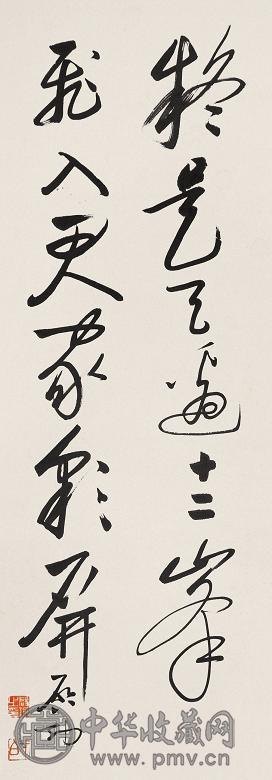 疑是天邊十二峯
飛入君家彩屏 启功
中华收藏网
www.pmv.cn